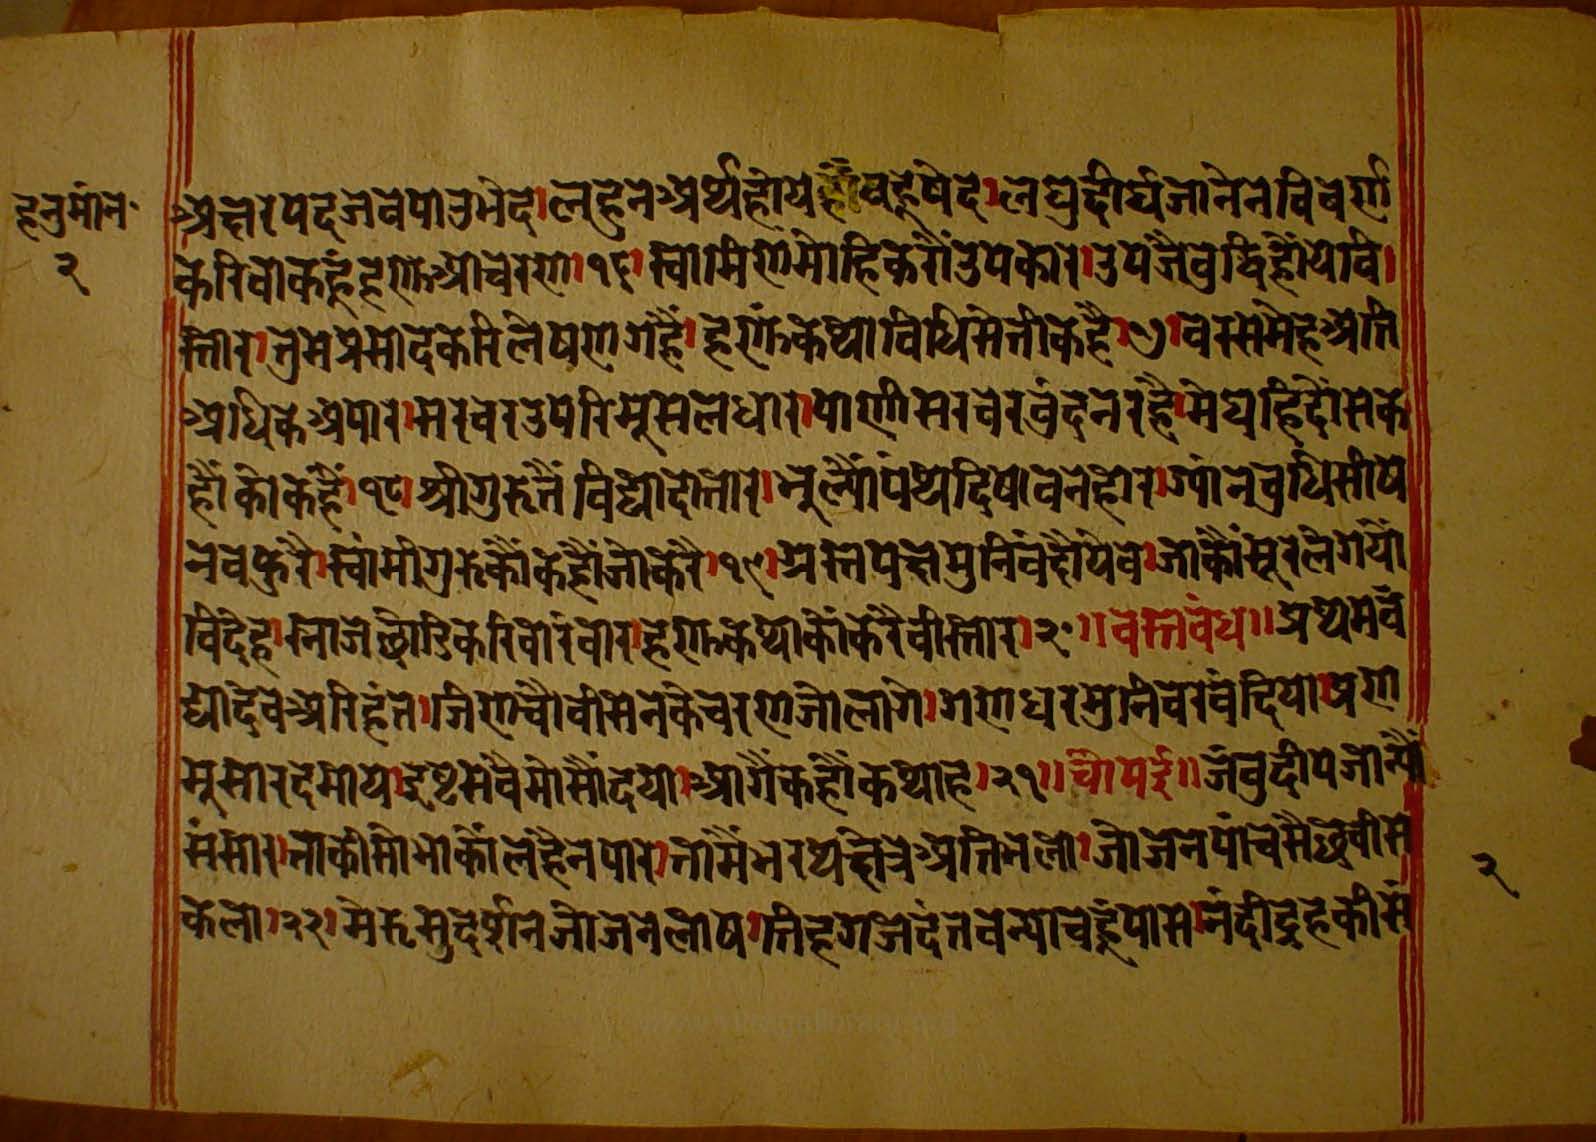 हनुमांन
२
अक्षर पद जब पाउ भेद। लहु न अर्थ होय बहू षेद। लघु दीर्घ जाने न विवर्ण
करिवा कहूं हणू आचरण। १६। स्वामिण मोहि करौ उपकार। उपजै बुधि होय वि।
स्तार। तुम प्रसाद करि लेषण गहै। हणूं कथा विधि सेती कहै। ७। वरस मेह अति
अधिक अपार। सरवर उपरि मूसलधार। पाणी सरवर बुंद न रहै। मेघहि दोस क
हौं को कहै। १८। श्री गुरु तैं विद्या दातार। भूल्यौ पंथ दिषावनहार। ग्यांन बुधि सीष
न व फुरै। स्वामी गुरु कौं कहौं जो करै। १९। प्रस्त पक्ष मुनि वंदौ येव। जा कौं सूर ले गयौ
विदेह। स्ना ज छाडि करि वारंवार। हणू कथा कौ करै वीस्तार। २०॥ वस्तबंध॥ प्रथम वं
द्या देव अरिहंत। जिण चौवीस न कै चरण जो लागे। गणधर मुनिवर वंदिया। प्रण
मू सारद माय। इष्ट सबै मो सौं दया। आगैं कहौं कथा ह। २१॥ चौपई॥ जंबुदीप जान्यौं
संसार। ता की सोभा कौ लहै न पार। ता मैं भरथ क्षेत्र अति भला। जोजन पांच सै छवीस
कला। २२। मेरु सुदर्शन जोजन लाष। तिह गजदंत वन्या चहूं पास। नंदी द्रह की सं
२